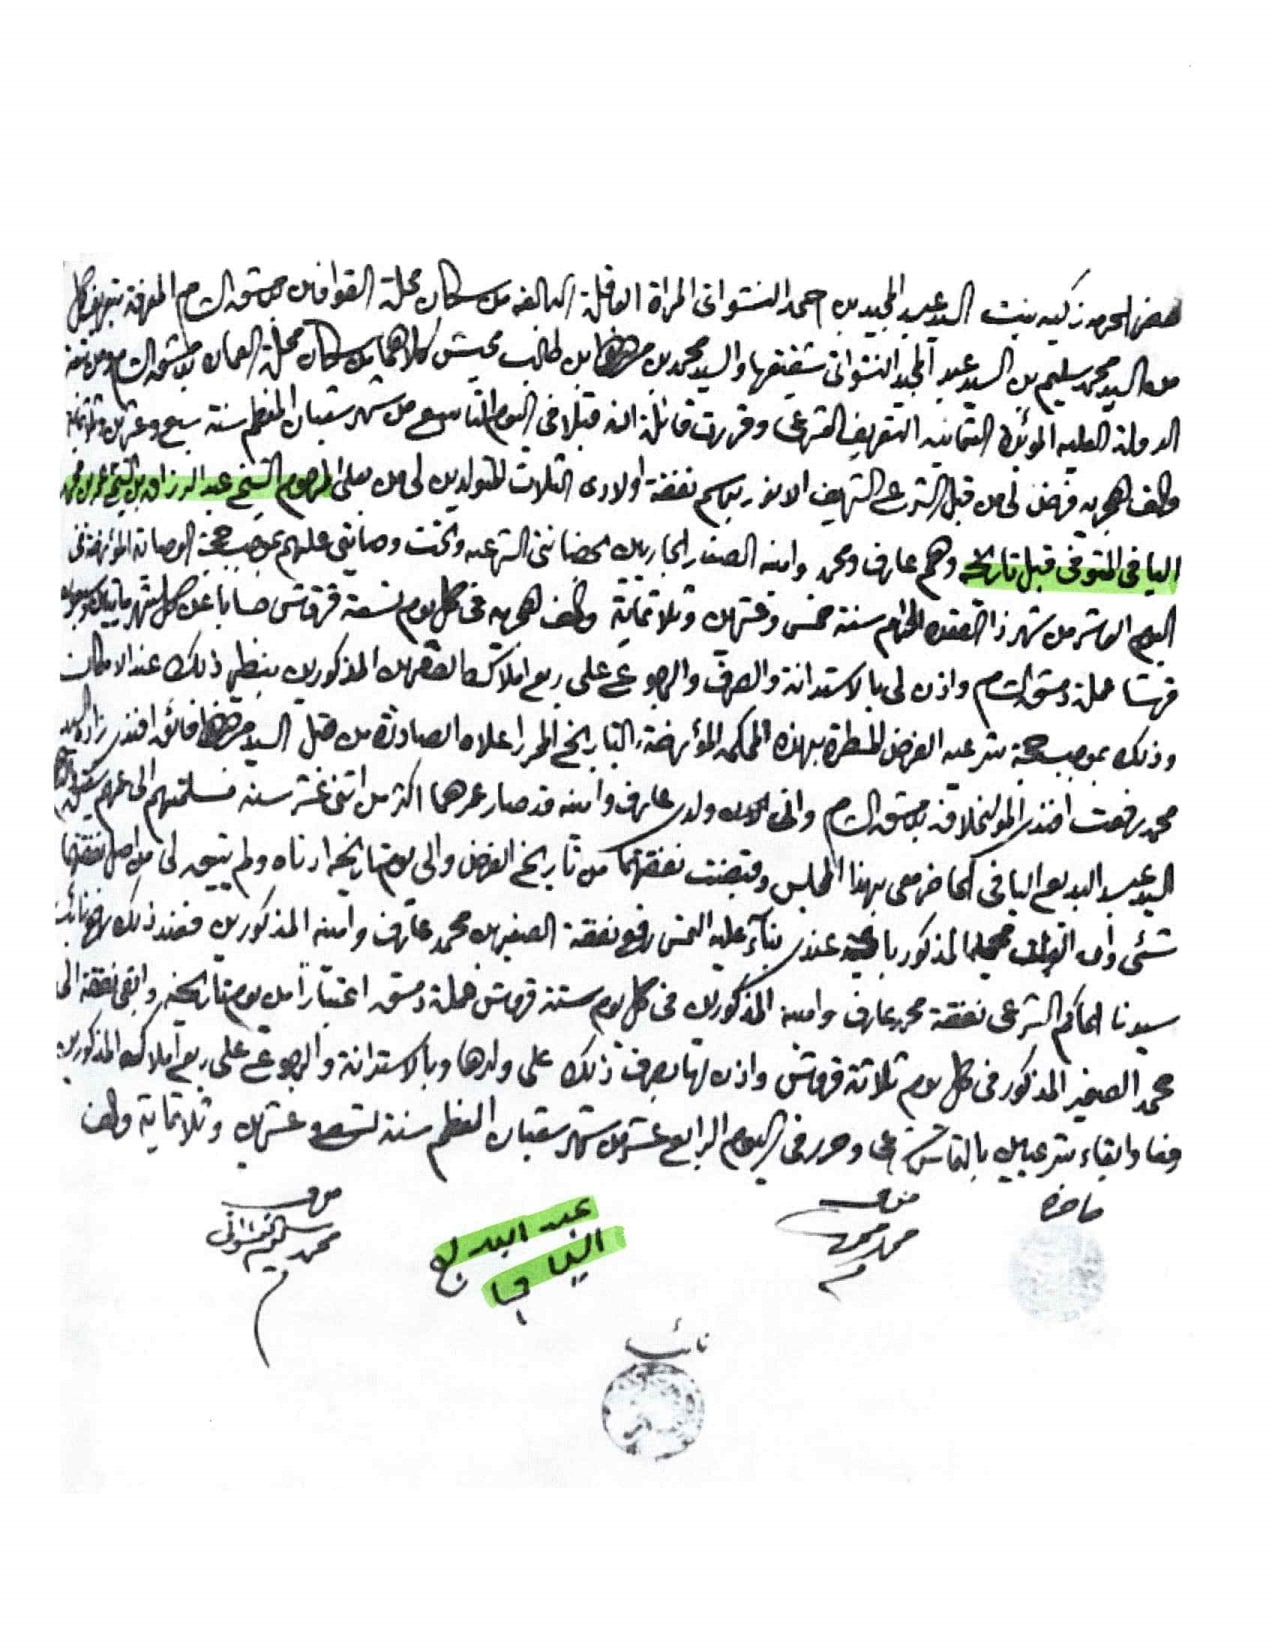 حضر الحرمه زكيه بنت السيد عبد المجيد بن احمد النشواتى المراة العاقلة البالغه من سكان محلة القوافين بدمشق الشام المعرفة بتعريف كل
من السيد محمد سليم بن السيد عبد المجيد النشواتى شقيقها والسيد محمد بن بن طالب محيش كلاهما من سكان محلة العماره بدمشق الشام ومن تبعة
الدولة العليه العثمانيه التعريف الشرعى وقررت قائلة انه قبلا فى اليوم التاسع من شهر شعبان المعظم سنة سبع وعشرين وثلاثمائة
والف هجريه فرض لى من قبل الشرع الشريف الانور برسم نفقة اولادى الثلاث المتولدين لى من بعلى المرحوم الشيخ عبد الرزاق بن الشيخ بن محمد
اليافى المتوفى قبل تاريخه وهم عارف ومحمد وامنه الصغار الجاريين بحضانتى الشرعيه وتحت وصايتى عليهم بموجب حجة الوصاية المؤرخة فى
اليوم العاشر من شهر ذا القعده الحرام سنة خمس وعشرين وثلاثمائة والف هجريه فى كل يوم تسعة قروش حسابا عن كل شهر مايتين وسبعون
قرشا عملة دمشق الشام واذن لى بالاستدانة والصرف والرجوع على ريع املاك الصغيرين المذكورين بنظير ذلك عند الامكان
وذلك بموجب حجة شرعيه الفرض المسطرة بهذه المحكمه المؤرخة بالتاريخ المحرر اعلاه الصادرة من قبل السيد فائق افندى زاده السيد
محمد رفعت افندى المولى خلافة بدمشق الشام وانى الان ولدى عارف وامنه قد صار عمرهما اكثر من اثنى عشرة سنه فسلمتهم الى عمهم شقيق
السيد عبد البديع اليافى الحاضر معى بهذا المجلس وقبضت نفقتهما من تاريخ الفرض والى يوم تاريخه ادناه ولم يتبق لى من اصل نفقتهما
شئى وان المذكور عندى بناء عليه التمس رفع نفقة الصغيرين محمد عارف وامنه المذكورين فعند ذلك رفع نائب
سيدنا الحاكم الشرعى نفقة محمد عارف وامنه المذكورين فى كل يوم ستة قروش عملة دمشق اعتبارا من يوم تاريخه وابقى نفقة
محمد الصغير المذكور فى كل يوم ثلاثة قروش واذن لها بصرف ذلك على ولدها وبالاستدانة والرجوع على ريع املاك المذكورين
رفعا وابقاء شرعيين بالتماس شرعى وحرر فى اليوم الرابع عشر من شهر شعبان المعظم سنة تسع وعشرين وثلاثماية والف
حاضرة
معرف
محمد محيش
عبد البديع
اليافى
معرف
محمد سليم النشواتى
نائب